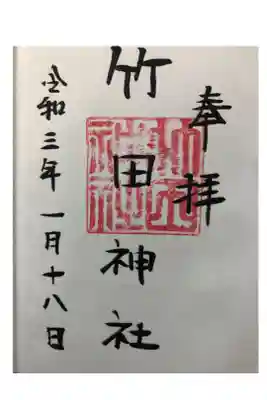 奉拝
竹田神社
令和三年一月十八日